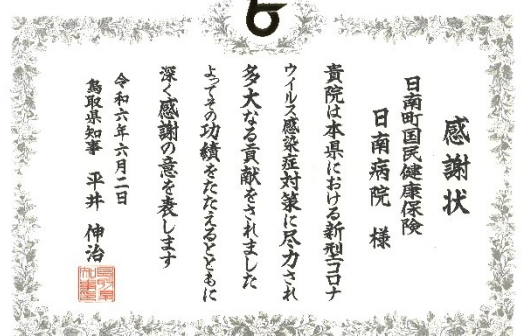 感謝状
日南町国民健康保険
日南病院 様
貴院は本県における新型コロナ
ウイルス感染症対策に尽力され
多大なる貢献をされました
よってその功績をたたえるとともに
深く感謝の意を表します
令和六年六月二日
鳥取県知事 平井 伸治